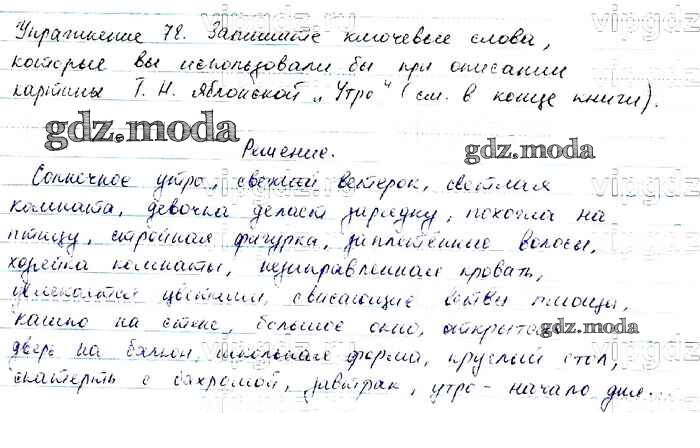 Упражнение 78. Запишите ключевые слова,
которые вы использовали бы при описании
картины Т. Н. Яблонской „Утро" (см. в конце книги).
gdz.moda
Решение.
gdz.moda
Солнечное утро, свежий ветерок, светлая
комната, девочка делает зарядку, похожа на
птицу, стройная фигурка, заплетённые волосы,
хозяйка комнаты, незаправленная кровать,
увлекается цветами, свисающие ветви
кашпо на стене, большое окно, открытая
gdz.moda
дверь на балкон, школьная форма, круглый стол,
скатерть с бахромой, завтрак, утро - начало дня...
vipgdz
vipgdz